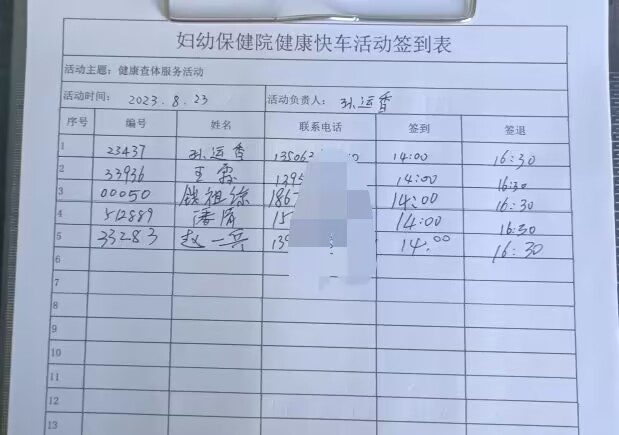 妇幼保健院健康快车活动签到表
活动主题：健康查体服务活动
活动时间： 2023.8.23 活动负责人： 孙运香
序号 编号 姓名 联系电话 签到 签退
1 23437 孙运香 13506 14:00 16:30
2 33936 王霖 1395 14:00 16:30
3 00050 钱祖综 186 14:00 16:30
4 512889 潘 15 14:00 16:30
5 33283 赵一兵 139 14:00 16:30
6
7
8
9
10
11
12
13